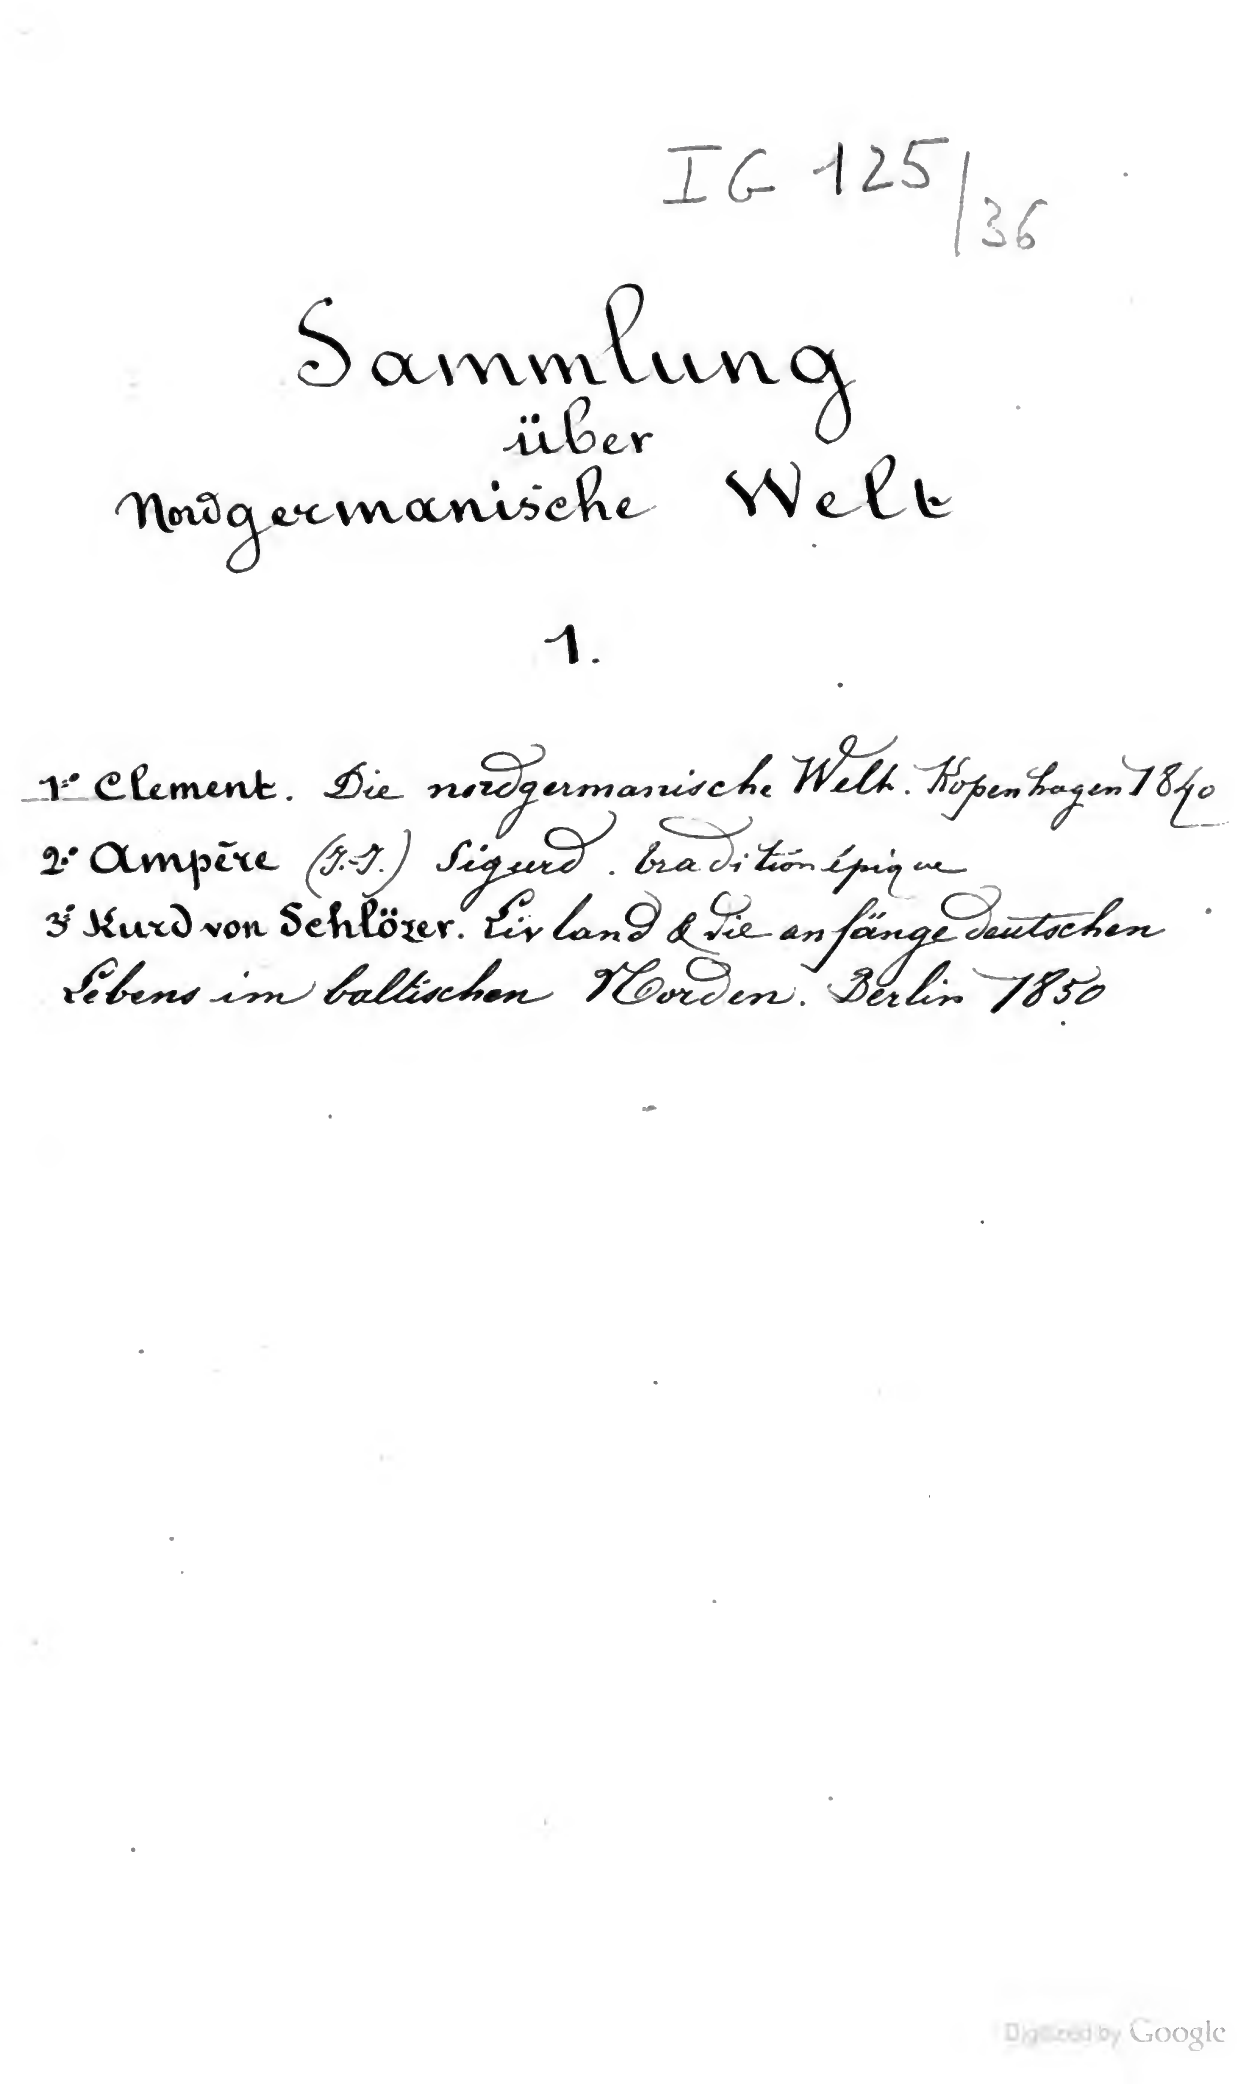 IG 125/36
Sammlung
über
Nordgermanische Welt
1.
1º Clement. Die nordgermanische Welt. Kopenhagen 1840
2º Ampère (J.-J.) Sigurd. tradition épique
3º Kurd von Schlözer. Livland & die anfänge deutschen
Lebens im baltischen Norden. Berlin 1850
Digitized by Google